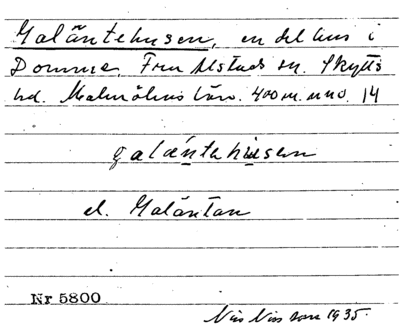 Galäntehusen, en del hus i
Domme, Fru Alstads sn. Skytts
hd. Malmöhus län. 400 m. nno. 14
galántehusen
el. Galäntan
Nr 5800
Nils Nilsson 1935.